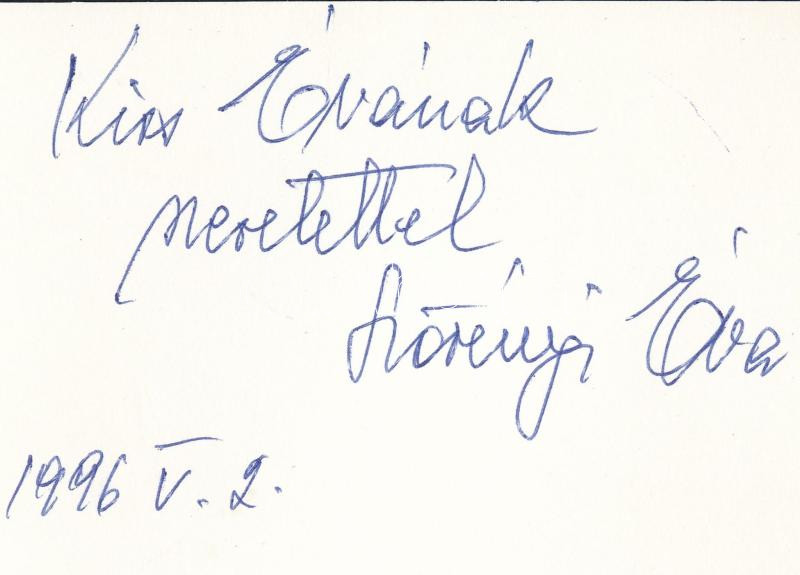 Kiss Évának
szeretettel
Szörényi Éva
1996 V. 2.